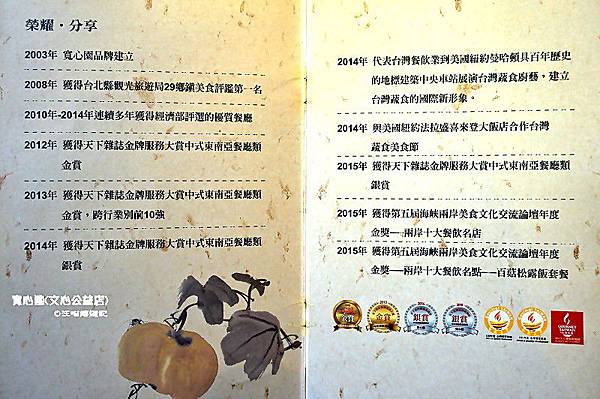 榮耀・分享
2003年 寬心園品牌建立
2008年 獲得台北縣觀光旅遊局29鄉鎮美食評鑑第一名
2010年-2014年連續多年獲得經濟部評選的優質餐廳
2012年 獲得天下雜誌金牌服務大賞中式東南亞餐廳類
金賞
2013年 獲得天下雜誌金牌服務大賞中式東南亞餐廳類
金賞，跨行業別前10強
2014年 獲得天下雜誌金牌服務大賞中式東南亞餐廳類
銀賞
寬心園(文心公益店)
2014年 代表台灣餐飲業到美國紐約曼哈頓具百年歷史
的地標建築中央車站展演台灣蔬食廚藝，建立
台灣蔬食的國際新形象。
2014年 與美國紐約法拉盛喜來登大飯店合作台灣
蔬食美食節
2015年 獲得天下雜誌金牌服務大賞中式東南亞餐廳類
銀賞
2015年 獲得第五屆海峽兩岸美食文化交流論壇年度
金獎──兩岸十大餐飲名店
2015年 獲得第五屆海峽兩岸美食文化交流論壇年度
金獎──兩岸十大餐飲名點──百菇松露飯套餐
金賞
金賞
銀賞
銀賞